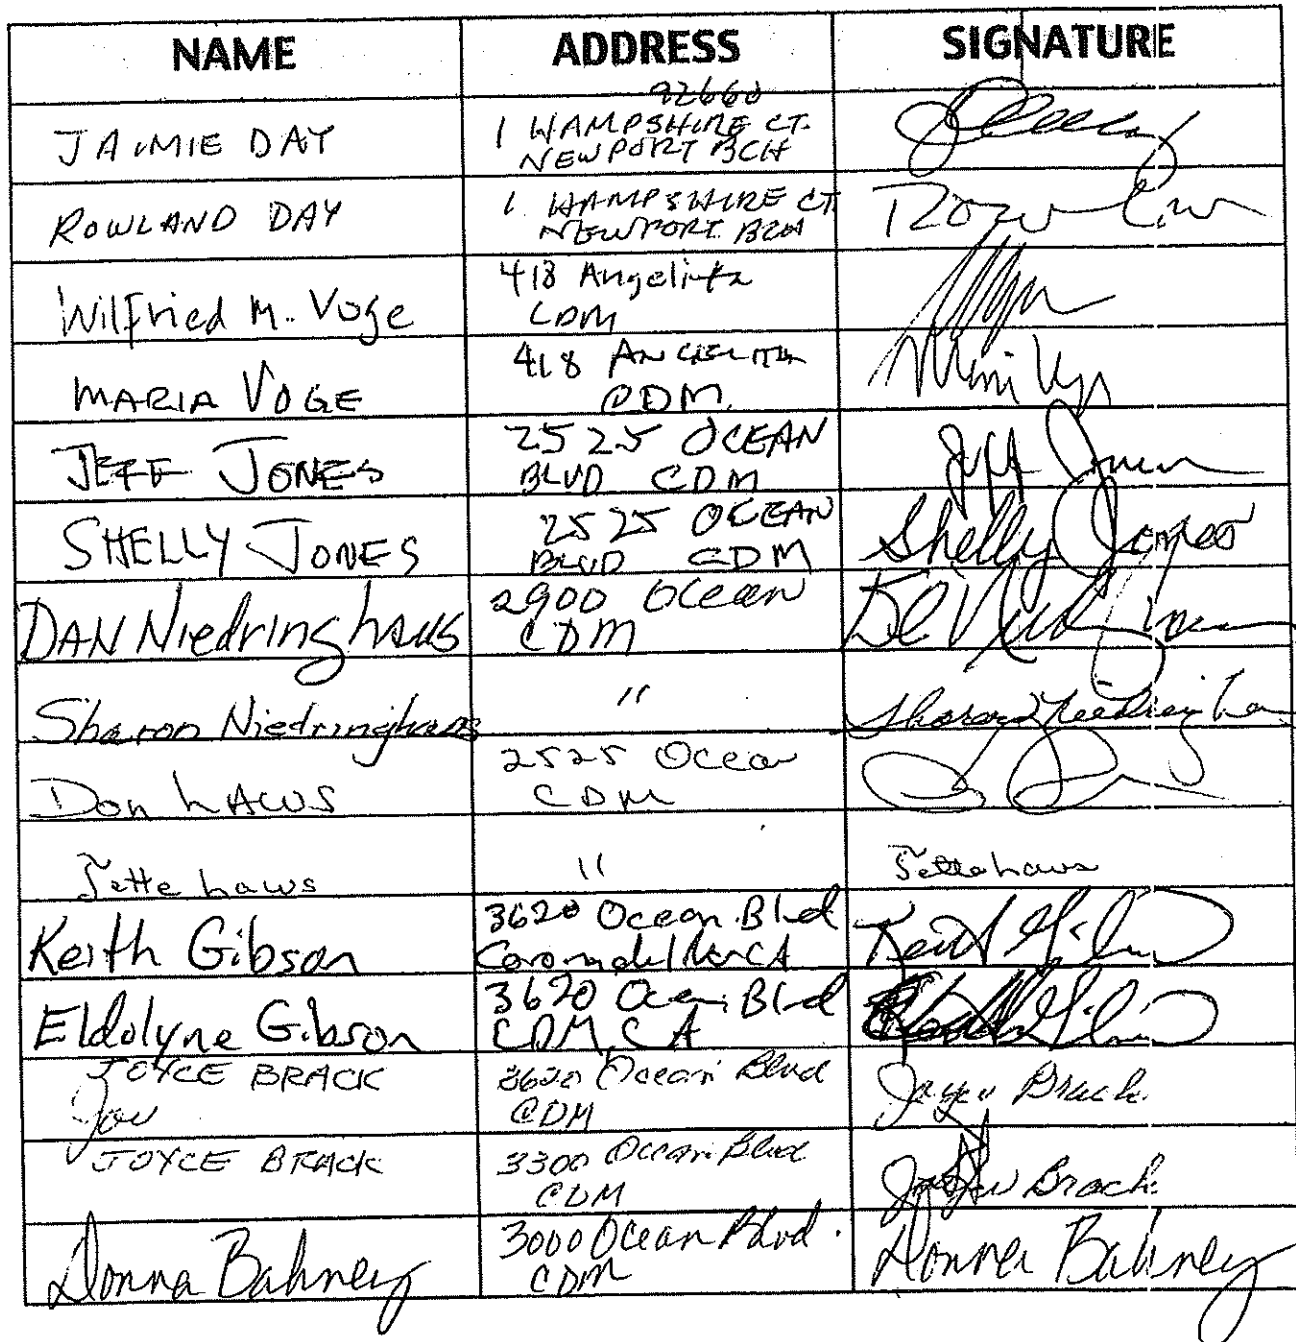 NAME ADDRESS SIGNATURE
92660
JAIMIE DAY 1 HAMPSHIRE CT.
NEWPORT BCH
ROWLAND DAY 1 HAMPSHIRE CT.
NEWPORT BCH
Wilfried M. Voge 418 Angelita
CDM
MARIA VOGE 418 ANGELITA
CDM.
JEFF JONES 2525 OCEAN Jeff Jones
BLVD CDM
SHELLY JONES 2525 OCEAN Shelly Jones
BLVD CDM
DAN Niedringhaus 2900 Ocean
CDM
Sharon Niedringhaus " Sharon Niedringhaus
Don LAWS 2525 Ocean
CDM
Jette Laws " Jette Laws
Keith Gibson 3620 Ocean Blvd Keith Gibson
Corona del Mar CA
Eldolyne Gibson 3620 Ocean Blvd Gibson
CDM, CA
JOYCE BRACK 3620 Ocean Blvd Joyce Brack
Joy CDM
JOYCE BRACK 3300 Ocean Blvd Brack
CDM
Donna Bahney 3000 Ocean Blvd. Donna Bahney
CDM